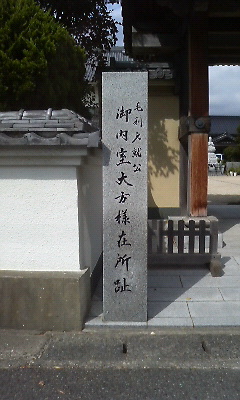 毛利元就公
御内室大方様在所趾